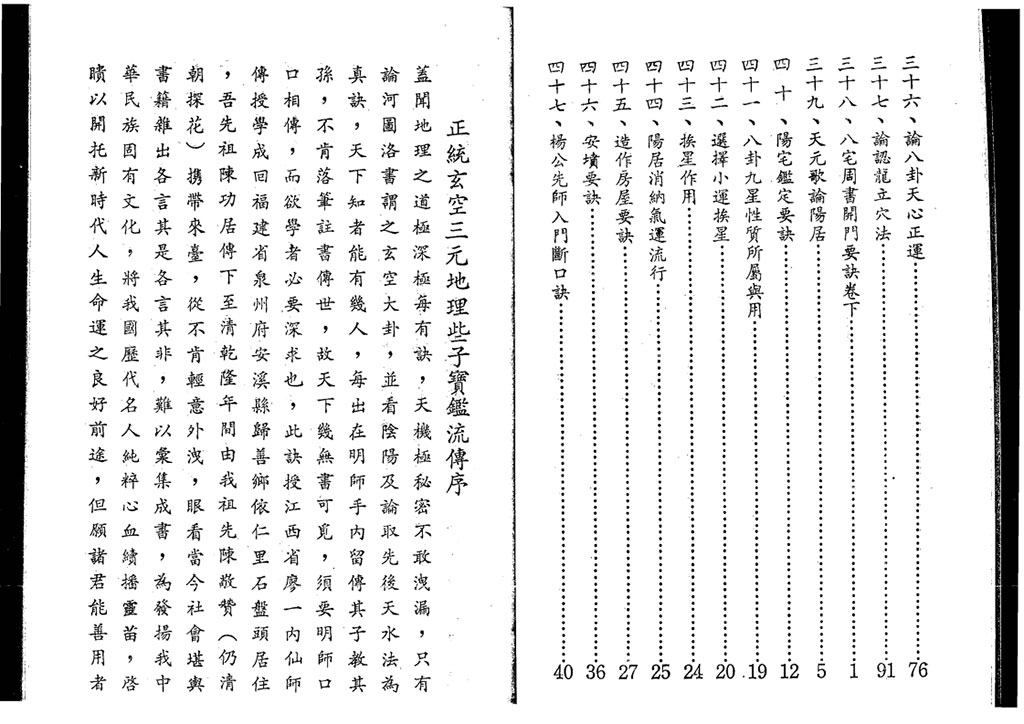 三十六、論八卦天心正運……76
三十七、論認龍立穴法……91
三十八、八宅周書開門要訣卷下……1
三十九、天元歌論陽居……5
四十、陽宅鑑定要訣……12
四十一、八卦九星性質所屬與用……19
四十二、選擇小運挨星……20
四十三、挨星作用……24
四十四、陽居消納氣運流行……25
四十五、造作房屋要訣……27
四十六、安墳要訣……36
四十七、楊公先師入門斷口訣……40
正統玄空三元地理些子寶鑑流傳序
蓋聞地理之道極深極每有訣，天機極秘密不敢洩漏，只有
論河圖洛書謂之玄空大卦，並看陰陽及論取先後天水法為
真訣，天下知者能有幾人，每出在明師手內留傳其子教其
孫，不肯落筆註書傳世，故天下幾無書可覓，須要明師口
口相傳，而欲學者必要深求也，此訣授江西省廖一內仙師
傳授學成回福建省泉州府安溪縣歸善鄉依仁里石盤頭居住
，吾先祖陳功居傳下至清乾隆年間由我祖先陳敬贊（仍清
朝探花）携帶來臺，從不肯輕意外洩，眼看當今社會堪輿
書籍雜出各言其是各言其非，難以彙集成書，為發揚我中
華民族固有文化，將我國歷代名人純粹心血續播靈苗，啓
瞶以開托新時代人生命運之良好前途，但願諸君能善用者